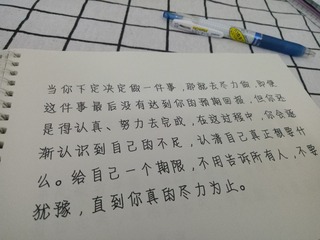 当你下定决定做一件事，那就去尽力做，即使
这件事最后没有达到你的预期回报，但你还
是得认真、努力去完成，在这过程中，你会逐
渐认识到自己的不足，认清自己真正想要什
么。给自己一个期限，不用告诉所有人，不要
犹豫，直到你真的尽力为止。